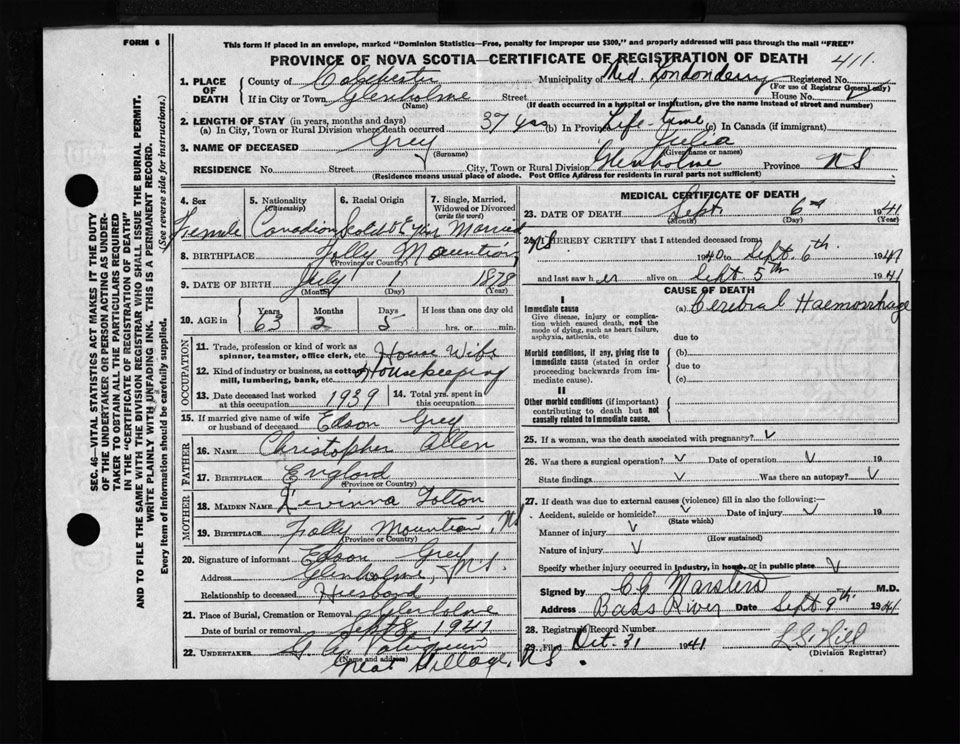 FORM 6
This form if placed in an envelope, marked "Dominion Statistics—Free, penalty for improper use $300," and properly addressed will pass through the mail "FREE"
PROVINCE OF NOVA SCOTIA—CERTIFICATE OF REGISTRATION OF DEATH 411.
1. PLACE OF DEATH
County of Colchester Municipality of Londonderry Registered No.
(For use of Registrar General only)
If in City or Town Glenholme Street House No.
(Name) (If death occurred in a hospital or institution, give the name instead of street and number)
2. LENGTH OF STAY (in years, months and days)
(a) In City, Town or Rural Division where death occurred 37 yrs (b) In Province Life-time (c) In Canada (if immigrant)
3. NAME OF DECEASED Grey Julia
(Surname) (Given name or names)
RESIDENCE No. Street City, Town or Rural Division Glenholme Province NS
(Residence means usual place of abode. Post Office Address for residents in rural parts not sufficient)
4. Sex Female
5. Nationality (Citizenship) Canadian
6. Racial Origin
7. Single, Married, Widowed or Divorced (write the word) Married
8. BIRTHPLACE Folly Mountain, NS
(Province or Country)
9. DATE OF BIRTH July 1 1878
(Month) (Year)
10. AGE in Years 63 Months 2 Days 5 If less than one day old hrs. or min.
OCCUPATION
11. Trade, profession or kind of work as spinner, teamster, office clerk, etc. House Wife
12. Kind of industry or business, as cotton mill, lumbering, bank, etc. Housekeeping
13. Date deceased last worked at this occupation 1939 14. Total yrs. spent in this occupation
15. If married give name of wife or husband of deceased Edson Grey
FATHER
16. NAME Christopher Allen
17. BIRTHPLACE England
(Province or Country)
MOTHER
18. MAIDEN NAME Levinna Totton
19. BIRTHPLACE Folly Mountain, NS
(Province or Country)
20. Signature of informant Edson Grey
Address Glenholme, N.S.
Relationship to deceased Husband
21. Place of Burial, Cremation or Removal Glenholme
Date of burial or removal Sept 8 1941
22. UNDERTAKER
(Name and address)
Great Village, N.S.
MEDICAL CERTIFICATE OF DEATH
23. DATE OF DEATH Sept 6 1941
(Month) (Day) (Year)
24. I HEREBY CERTIFY that I attended deceased from
1940 to Sept. 6th 1941
and last saw h er alive on Sept. 5th 1941
CAUSE OF DEATH
I
Immediate cause (a) Cerebral Haemorrhage
Give disease, injury or complication which caused death, not the mode of dying, such as heart failure, asphyxia, asthenia, etc
due to
Morbid conditions, if any, giving rise to immediate cause (stated in order proceeding backwards from immediate cause).
(b)
due to
(c)
II
Other morbid conditions (if important) contributing to death but not causally related to immediate cause.
25. If a woman, was the death associated with pregnancy?
26. Was there a surgical operation? Date of operation 19
State findings Was there an autopsy?
27. If death was due to external causes (violence) fill in also the following:—
Accident, suicide or homicide? Date of injury 19
(State which)
Manner of injury
(How sustained)
Nature of injury
Specify whether injury occurred in industry, in home, or in public place
Signed by C G Marsters M.D.
Address Bass River Date Sept 9th 1941
28. Registrar's Record Number
29. Filed Oct. 31 1941 L S Hill
(Division Registrar)
SEC. 46—VITAL STATISTICS ACT MAKES IT THE DUTY
OF THE UNDERTAKER OR PERSON ACTING AS UNDERTAKER
TO OBTAIN ALL THE PARTICULARS REQUIRED
IN THE "CERTIFICATE OF REGISTRATION OF DEATH"
AND TO FILE THE SAME WITH THE DIVISION REGISTRAR WHO SHALL ISSUE THE BURIAL PERMIT.
WRITE PLAINLY WITH UNFADING INK. THIS IS A PERMANENT RECORD.
Every item of information should be carefully supplied. (See reverse side for instructions.)